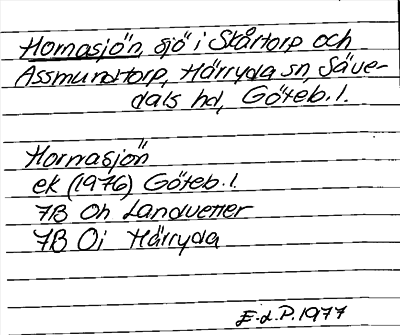 Hornasjön, sjö i Skårtorp och
Assmundtorp, Härryda sn, Säve-
dals hd, Göteb. l.
Hornasjön
ek (1976) Göteb. l.
7B Oh Landvetter
7B Oi Härryda
E.d.P. 1977